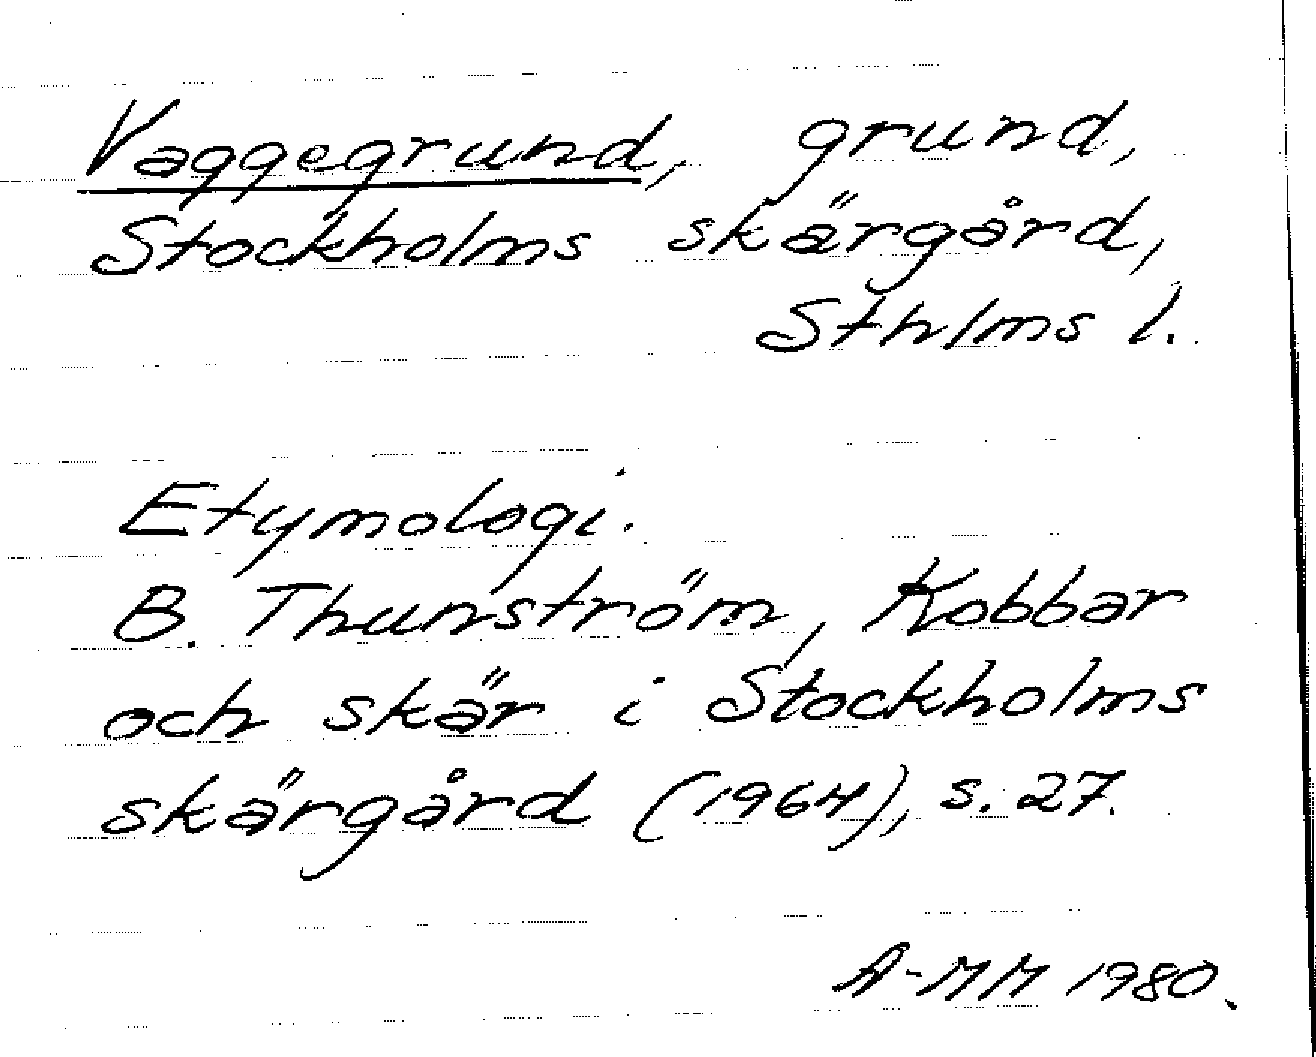 Vaggegrund, grund,
Stockholms skärgård,
Sthlms l.
Etymologi.
B. Thunström, Kobbar
och skär i Stockholms
skärgård (1964), s. 27.
A-MM 1980.